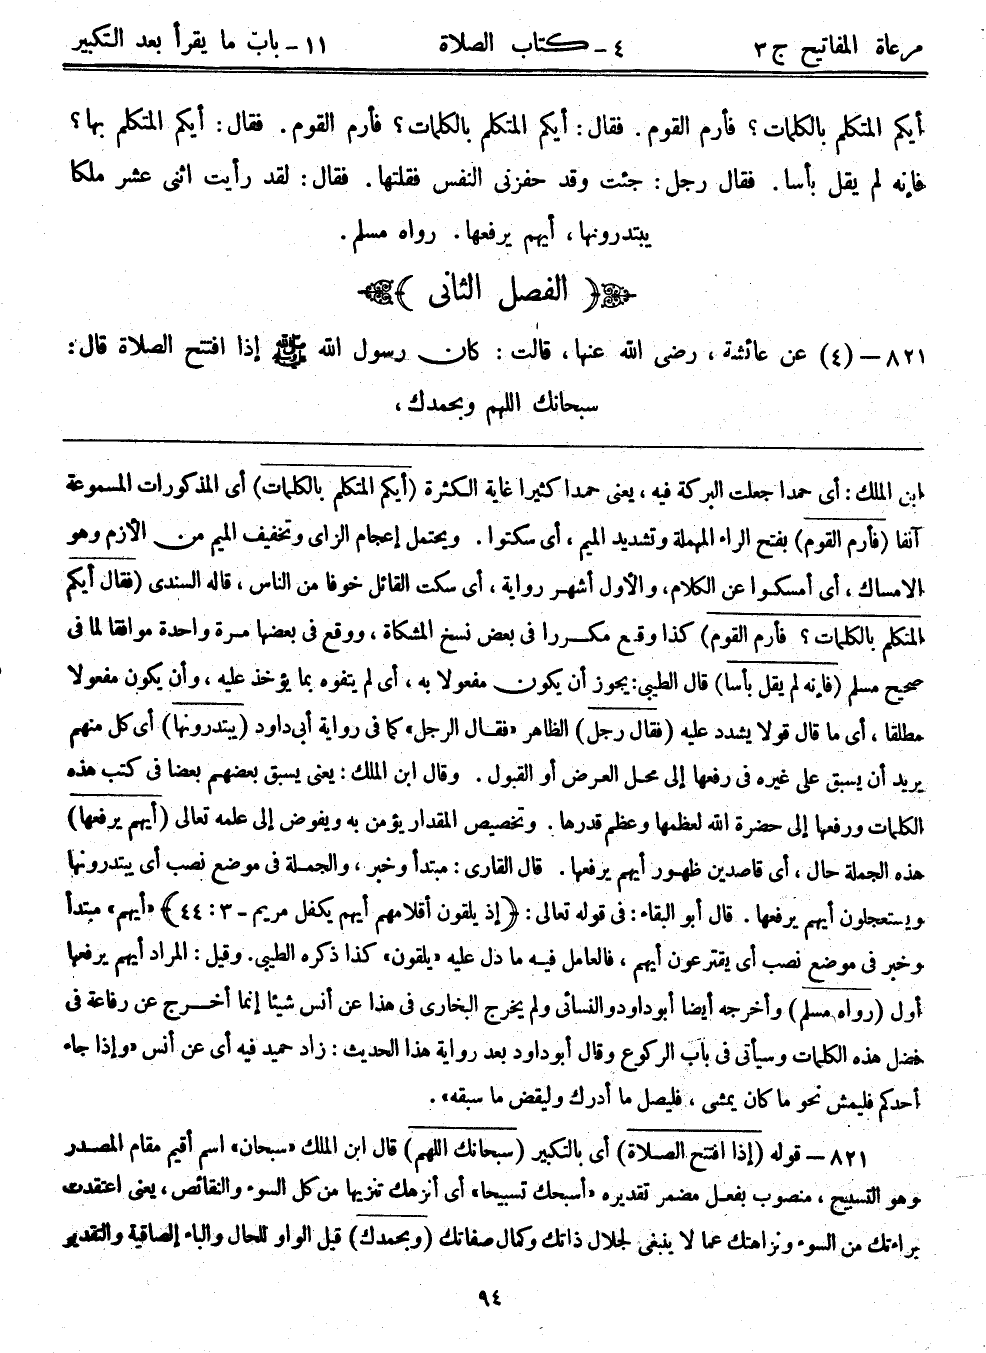 مرعاة المفاتيح ج ٣ ٤ - كتاب الصلاة ١١ - باب ما يقرأ بعد التكبير
أيكم المتكلم بالكلمات؟ فأرم القوم. فقال: أيكم المتكلم بالكلمات؟ فأرم القوم. فقال: أيكم المتكلم بها؟
فإنه لم يقل بأسا. فقال رجل: جئت وقد حفزنى النفس فقلتها. فقال: لقد رأيت اثنى عشر ملكا
يبتدرونها، أيهم يرفعها. رواه مسلم.
﴿ الفصل الثانى ﴾
٨٢١ – (٤) عن عائشة، رضى الله عنها، قالت: كان رسول الله ﷺ إذا افتتح الصلاة قال:
سبحانك اللهم وبحمدك،
ابن الملك: أى حمدا جعلت البركة فيه، يعنى حمدا كثيرا غاية الكثرة (أيكم المتكلم بالكلمات) أى المذكورات المسموعة
آنفا (فأرم القوم) بفتح الراء المهملة وتشديد الميم، أى سكتوا. ويحتمل إعجام الزاى وتخفيف الميم من الأزم وهو
الامساك، أى أمسكوا عن الكلام، والأول أشهر رواية، أى سكت القائل خوفا من الناس، قاله السندى (فقال أيكم
المتكلم بالكلمات؟ فأرم القوم) كذا وقع مكررا فى بعض نسخ المشكاة، ووقع فى بعضها مرة واحدة موافقا لما فى
صحيح مسلم (فإنه لم يقل بأسا) قال الطيبى: يجوز أن يكون مفعولا به، أى لم يتفوه بما يؤخذ عليه، وأن يكون مفعولا
مطلقا، أى ما قال قولا يشدد عليه (فقال رجل) الظاهر «فقال الرجل» كما فى رواية أبى داود (يبتدرونها) أى كل منهم
يريد أن يسبق على غيره فى رفعها إلى محل العرض أو القبول. وقال ابن الملك: يعنى يسبق بعضهم بعضا فى كتب هذه
الكلمات ورفعها إلى حضرة الله لعظمها وعظم قدرها. وتخصيص المقدار يؤمن به ويفوض إلى علمه تعالى (أيهم يرفعها)
هذه الجملة حال، أى قاصدين ظهور أيهم يرفعها. قال القارى: مبتدأ وخبر، والجملة فى موضع نصب أى يبتدرونها
ويستعجلون أيهم يرفعها. قال أبو البقاء: فى قوله تعالى: ﴿إذ يلقون أقلامهم أيهم يكفل مريم – ٣: ٤٤﴾ «أيهم» مبتدأ
وخبر فى موضع نصب أى يقترعون أيهم، فالعامل فيه ما دل عليه «يلقون» كذا ذكره الطيبى. وقيل: المراد أيهم يرفعها
أول (رواه مسلم) وأخرجه أيضا أبوداود والنسائى ولم يخرج البخارى فى هذا عن أنس شيئا إنما أخرج عن رفاعة فى
فضل هذه الكلمات وسيأتى فى باب الركوع وقال أبوداود بعد رواية هذا الحديث: زاد حميد فيه أى عن أنس «وإذا جاء
أحدكم فليمش نحو ما كان يمشى، فليصل ما أدرك وليقض ما سبقه».
٨٢١ – قوله (إذا افتتح الصلاة) أى بالتكبير (سبحانك اللهم) قال ابن الملك «سبحان» اسم أقيم مقام المصدر
وهو التسبيح، منصوب بفعل مضمر تقديره «أسبحك تسبيحا» أى أنزهك تنزيها من كل السوء والنقائص، يعنى اعتقدت
براءتك من السوء ونزاهتك عما لا ينبغى لجلال ذاتك وكمال صفاتك (وبحمدك) قيل الواو للحال والباء إلصاقية والتقدير
٩٤